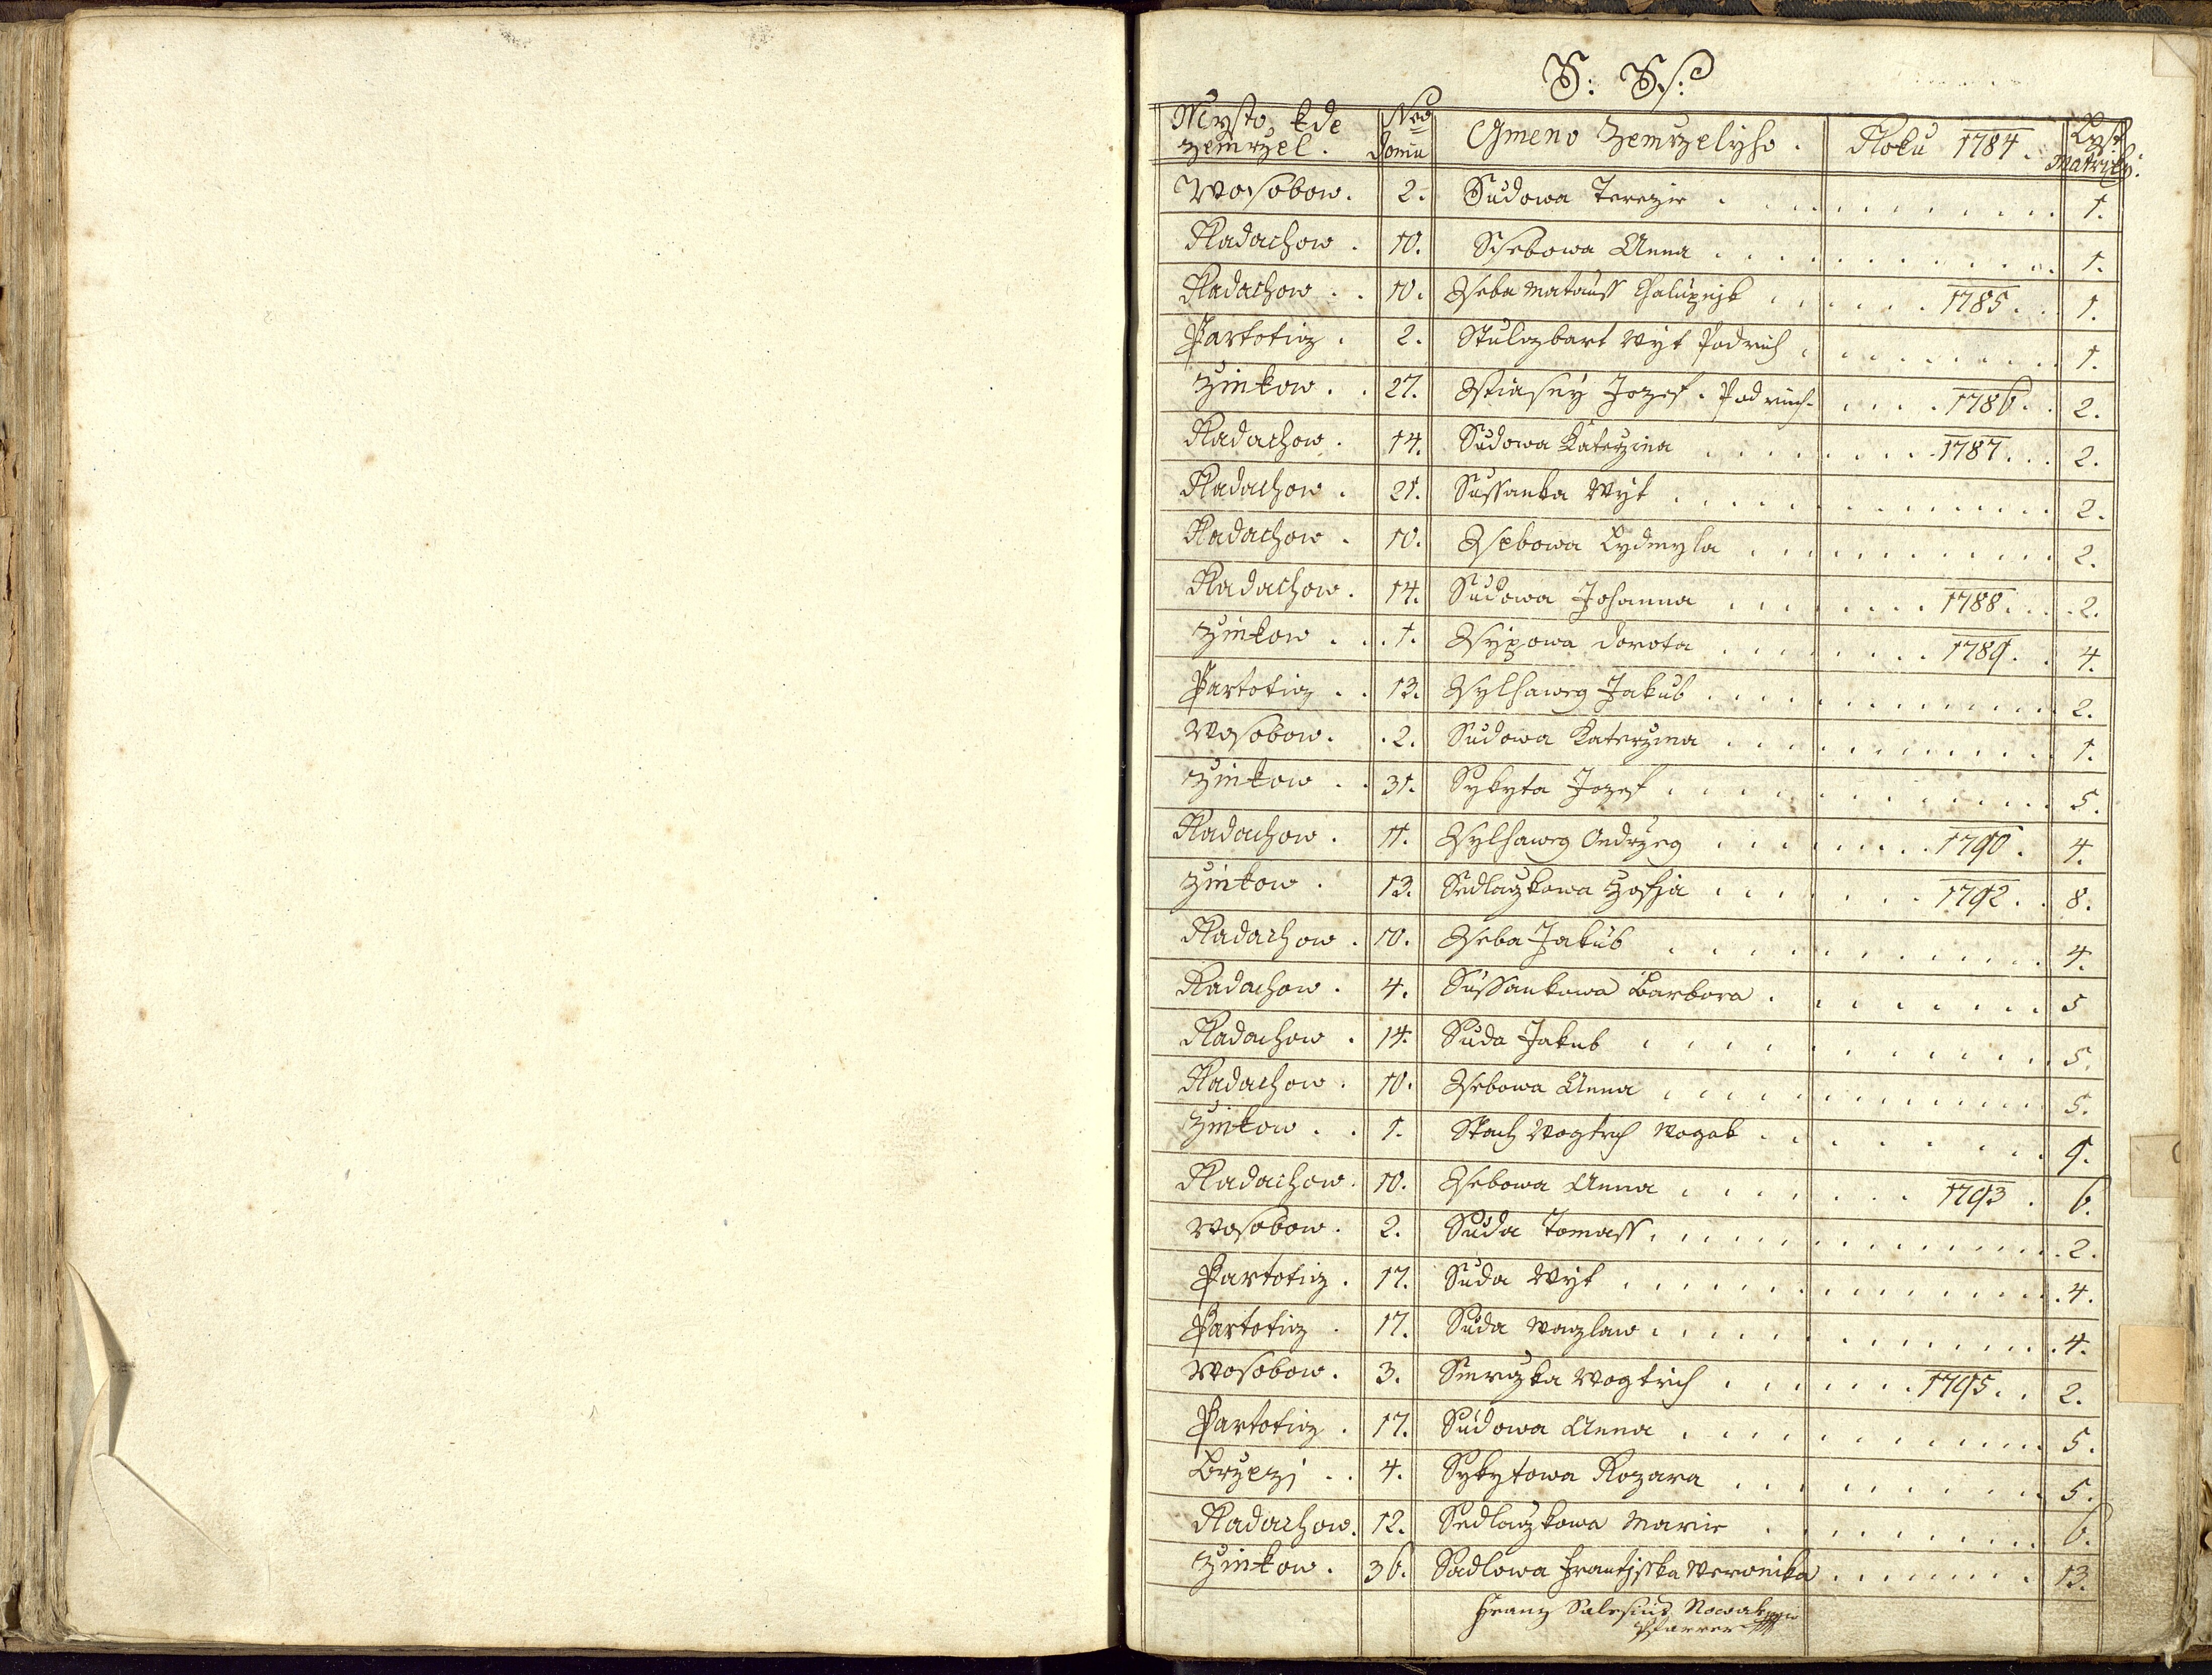 S: Ss:
Mysto, kde zemrzel. Nro Domu Gmeno Zemrzelyho. Roku 1784. Lyst Matriky.
Wosobow. 2. Sudowa Terezie 1.
Radachow. 10. Ssebowa Anna 1.
Radachow. 10. Sseba Matauss Chalupnjk 1785. 1.
Partotiz. 2. Wyt Podruh 1.
Zinkow. 27. Sstiasny Jozef. Podruh. 1786. 2.
Radachow. 14. Sudowa Katerzina 1787. 2.
Radachow. 21. Sussanka Wyt 2.
Radachow. 10. Ssebowa Lydmyla 2.
Radachow. 14. Sudowa Johanna 1788. 2.
Zinkow. 1. Ssypowa Dorota 1789. 4.
Partotiz. 13. Ssylhaweg Jakub 2.
Wosobow. 2. Sudowa Katerzina 1.
Zinkow. 31. Sykyta Jozef 5.
Radachow. 11. Ssylhaweg Ondrzeg 1790. 4.
Zinkow. 13. Sedlaczkowa Zofia 1792. 8.
Radachow. 10. Sseba Jakub 4.
Radachow. 4. Sussankowa Barbora. 5
Radachow. 14. Suda Jakub 5.
Radachow. 10. Ssebowa Anna 5.
Zinkow. 1. Stach Wogtech Wogak 9.
Radachow. 10. Ssebowa Anna 1793. 6.
Wosobow. 2. Suda Tomass. 2.
Partotiz. 17. Suda Wyt 4.
Partotiz. 17. Suda Waczlaw 4.
Wosobow. 3. Smrczka Wogtiech 1795. 2.
Partotiz. 17. Sudowa Anna 5.
Brzezj. 4. Sykytowa Rozara 5.
Radachow. 12. Sedlaczkowa Marie 6.
Zinkow. 36. Sadlowa Frantjsska Weronika 13.
Franz Salesius Nowak
Pfarrer